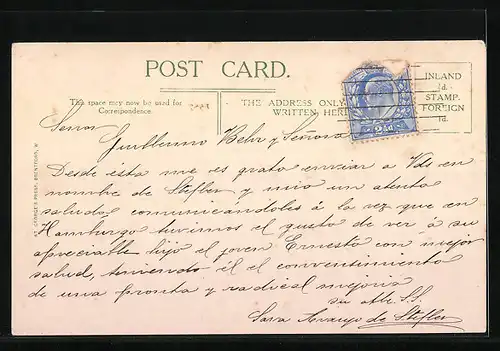 POST CARD.
INLAND
½d.
STAMP.
FOREIGN
1d.
This space may now be used for
Correspondence
THE ADDRESS ONLY
WRITTEN HERE
2½d
ST. GEORGE'S PRESS, BRENTFORD, W.
Señor
Guillermo Behr y Señora
Desde ésta me es grato enviar a Vds en
nombre de Stefler y mio un atento
saludo, comunicándoles á la vez que en
Hamburgo tuvimos el gusto de ver á su
apreciable hijo el joven Ernesto con mejor
salud, teniendo él el convencimiento
de una pronta y radical mejoria
su atte. S.S.
Sara Araujo de Stefler